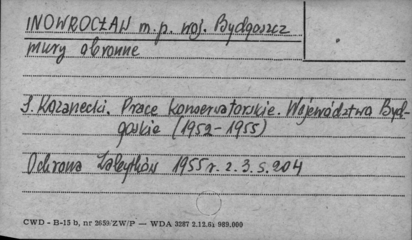 INOWROCŁAW m.p. woj. Bydgoszcz
mury obronne
J. Kozanecki. Prace konserwatorskie. Województwo Byd-
goskie (1952-1955)
Ochrona Zabytków 1955 r. z. 3. s. 204
CWD - B-15 b, nr 2659/ZW/P — WDA 3287 2.12.61 989.000